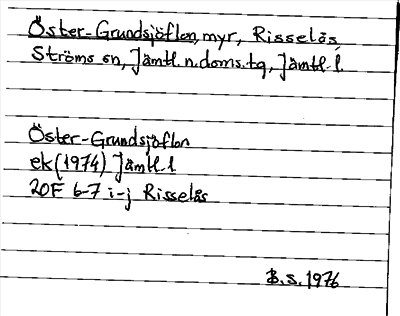 Öster-Grundsjöflon, myr, Risselås,
Ströms sn, Jämtl. n. doms. tg, Jämtl. l.
Öster-Grundsjöflon
ek (1974) Jämtl. l
20F 6-7 i-j Risselås
B.S. 1976